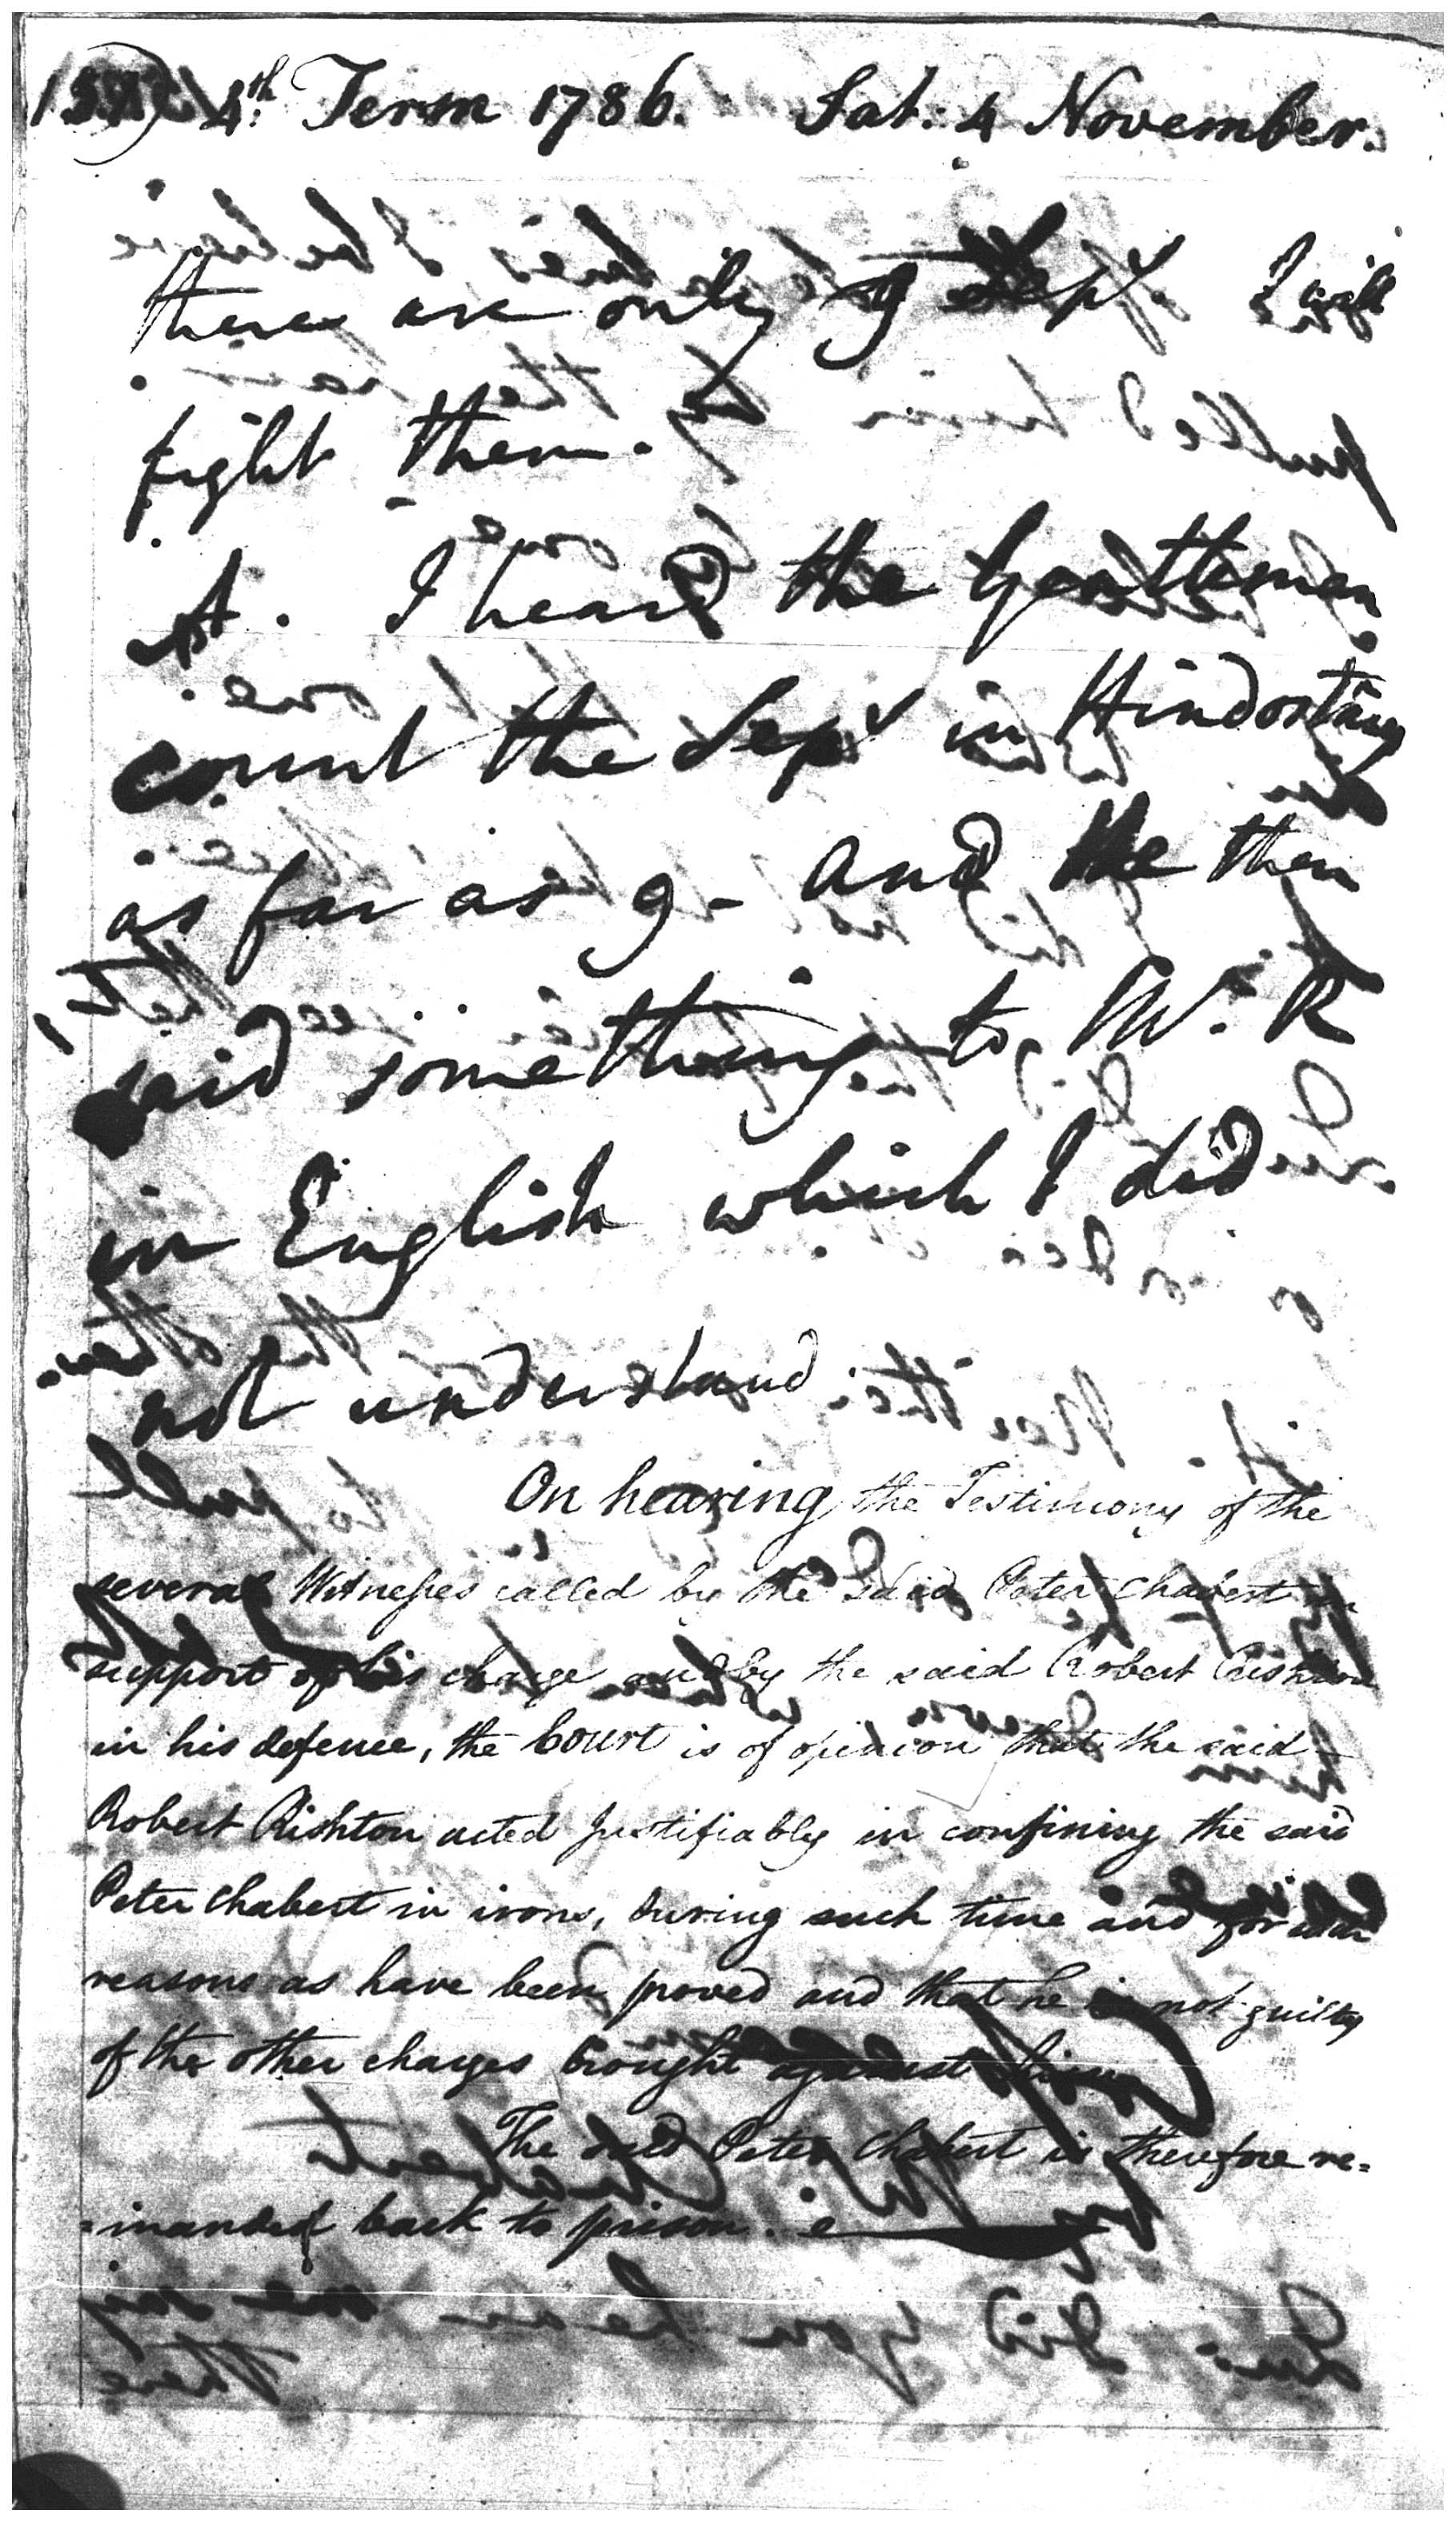 4th. Term 1786. Sat: 4 November.
there are only 9 Sepy. I will
fight them.
A. I heard the Gentleman
count the Sepy in Hindostany
as far as 9 - and he then
said something to Mr. R
in English which I did
not understand.
On hearing the Testimony of the
several Witnesses called by the said Peter Chabert in
support of his charge and by the said Robert Rishton
in his defence, the Court is of opinion that the said
Robert Rishton acted justifiably in confining the said
Peter Chabert in irons, during such time and for such
reasons as have been proved and that he is not guilty
of the other charges brought against him.
The said Peter Chabert is therefore re=
=manded back to prison.